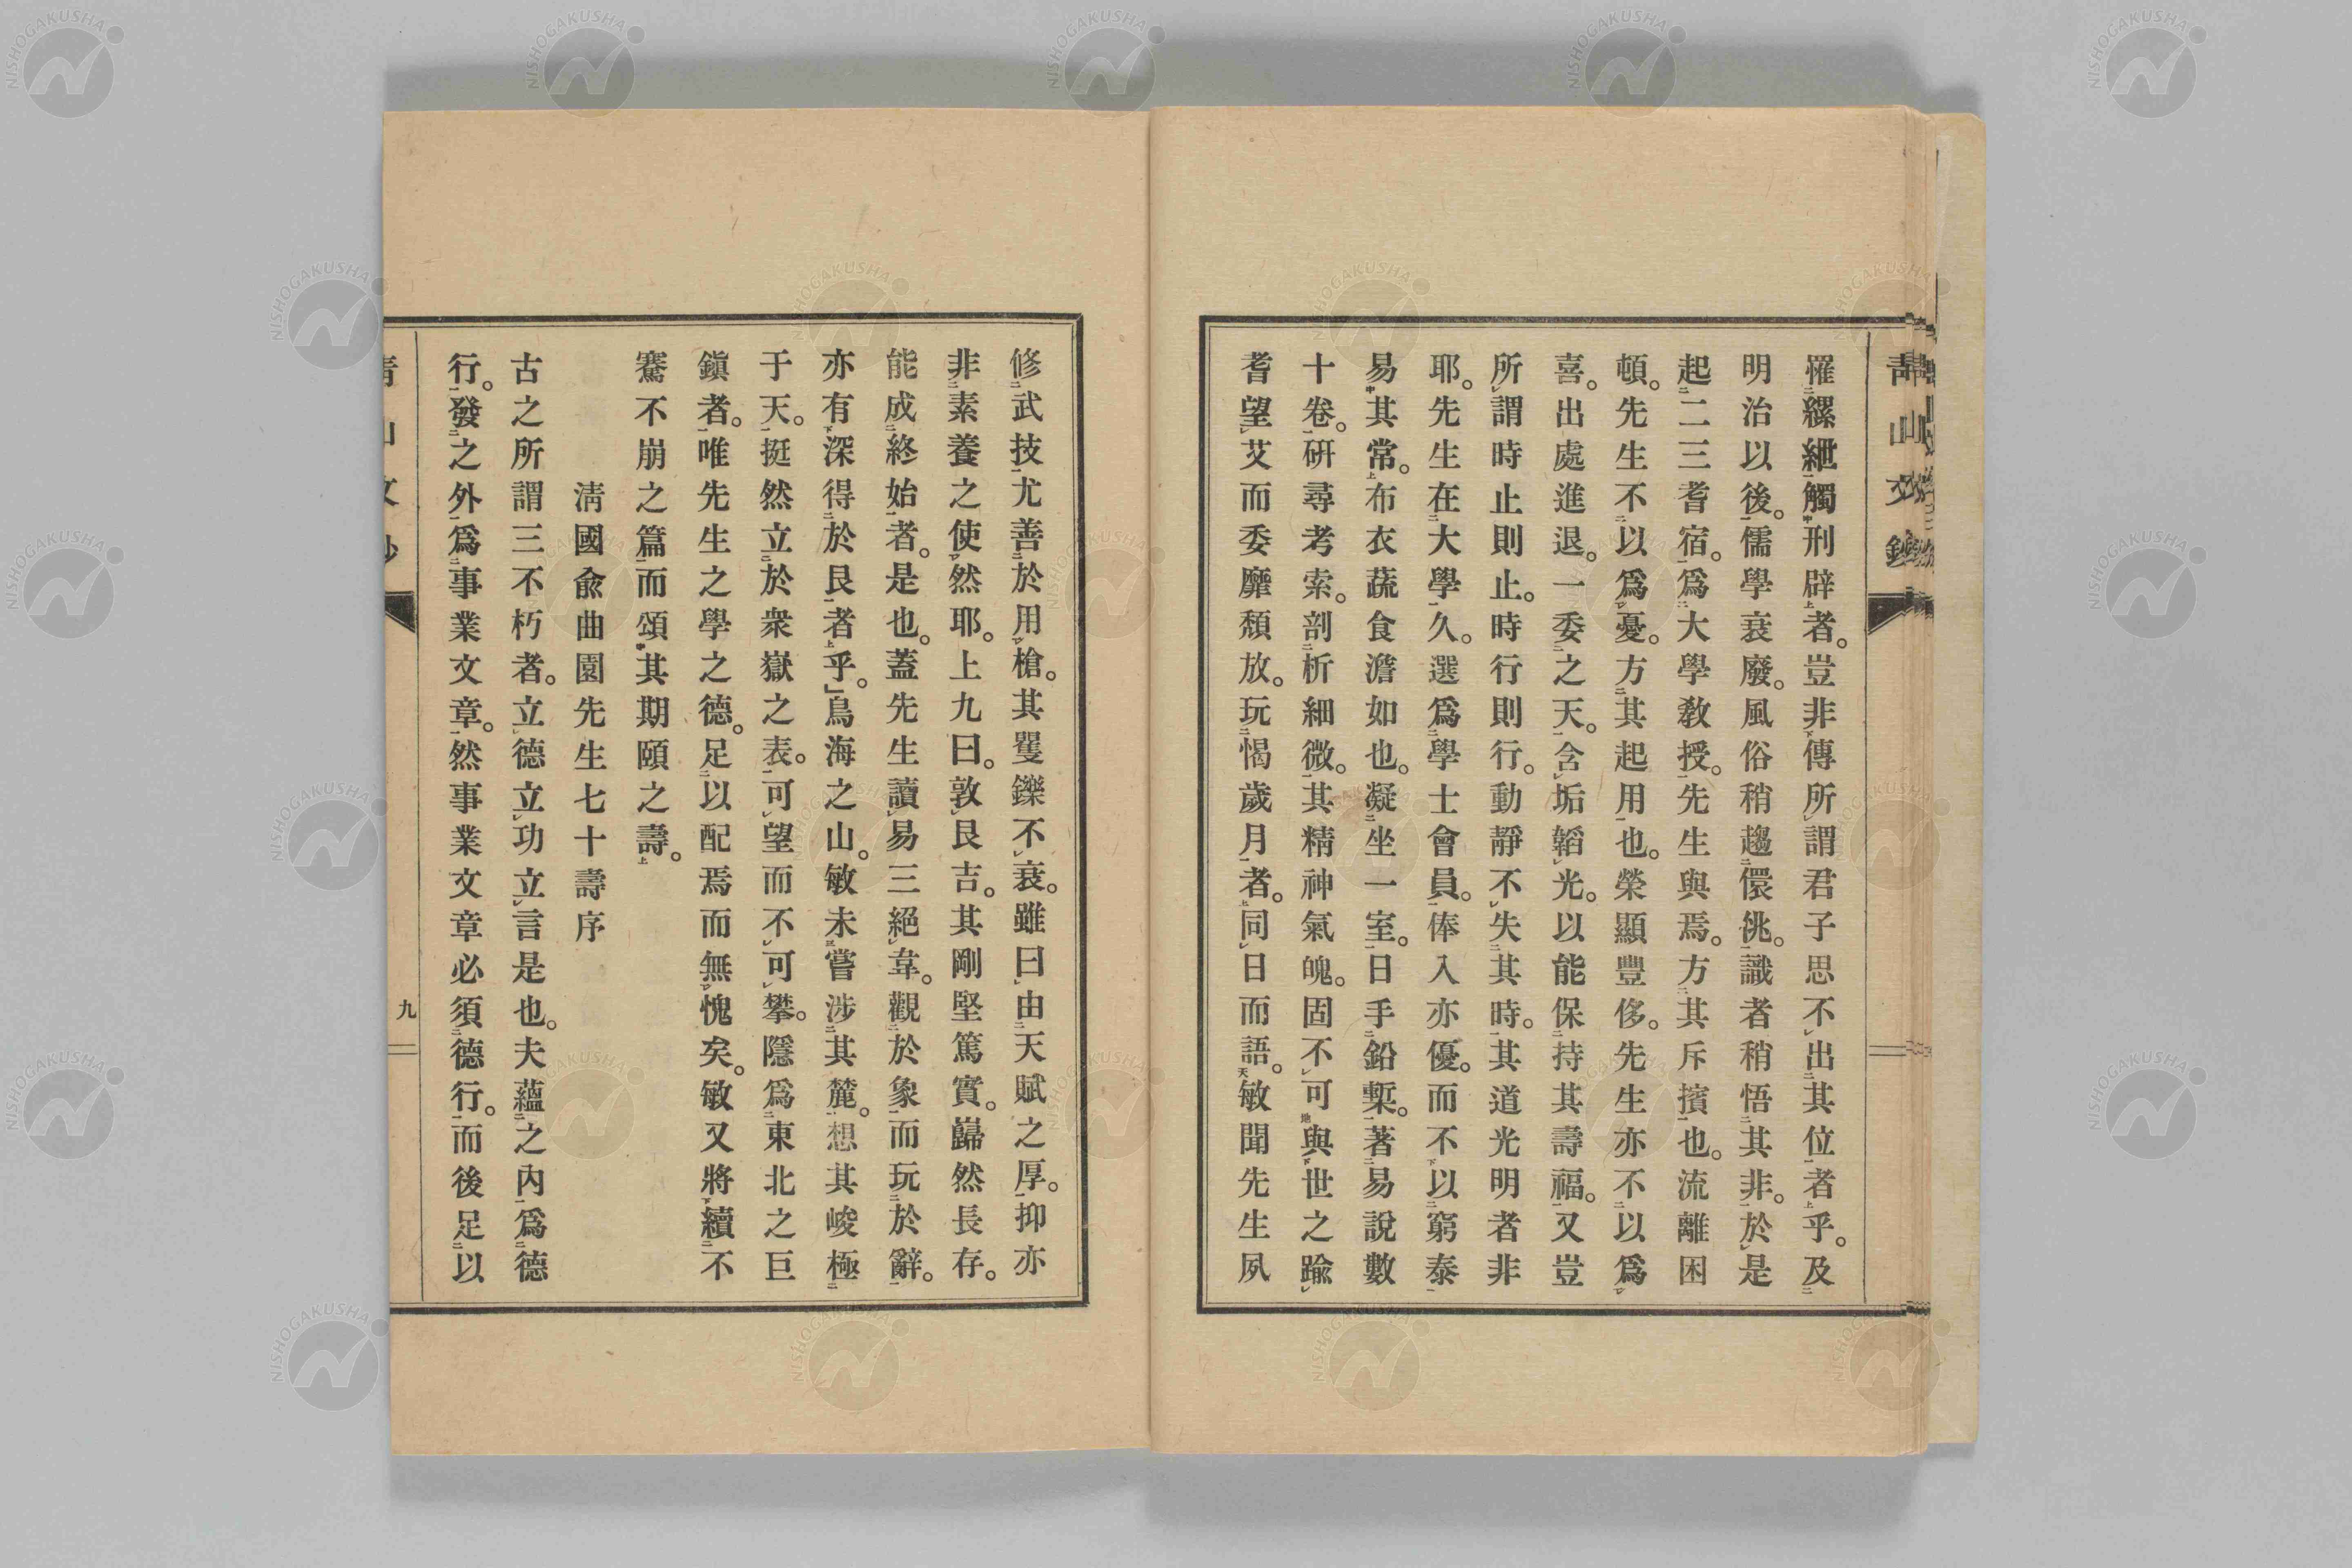 青山文鈔
罹縲紲觸刑辟者。豈非傳所謂君子思不出其位者乎。及
明治以後。儒學衰廢。風俗稍趨儇佻。識者稍悟其非。於是
起二三耆宿。爲大學教授。先生與焉。方其斥擯也。流離困
頓。先生不以爲憂。方其起用也。榮顯豐侈。先生亦不以爲
喜。出處進退。一委之天。含垢韜光。以能保持其壽福。又豈
所謂時止則止。時行則行。動靜不失其時。其道光明者非
耶。先生在大學久。選爲學士會員。俸入亦優。而不以窮泰
易其常。布衣蔬食澹如也。凝坐一室。日手鉛槧。著易說數
十卷。研尋考索。剖析細微。其精神氣魄。固不可與世之踰
耆望艾而委靡頹放。玩愒歲月者。同日而語。敏聞先生夙
修武技尤善於用槍。其矍鑠不衰。雖曰由天賦之厚。抑亦
非素養之使然耶。上九曰。敦艮吉。其剛堅篤實。巋然長存。
能成終始者。是也。蓋先生讀易三絕韋。觀於象而玩於辭。
亦有深得於艮者乎。鳥海之山。敏未嘗涉其麓。想其峻極
于天。挺然立於衆嶽之表。可望而不可攀。隱爲東北之巨
鎭者。唯先生之學之德。足以配焉而無愧矣。敏又將續不
騫不崩之篇而頌其期頤之壽。
淸國兪曲園先生七十壽序
古之所謂三不朽者。立德立功立言是也。夫蘊之內爲德
行。發之外爲事業文章。然事業文章必須德行。而後足以
九